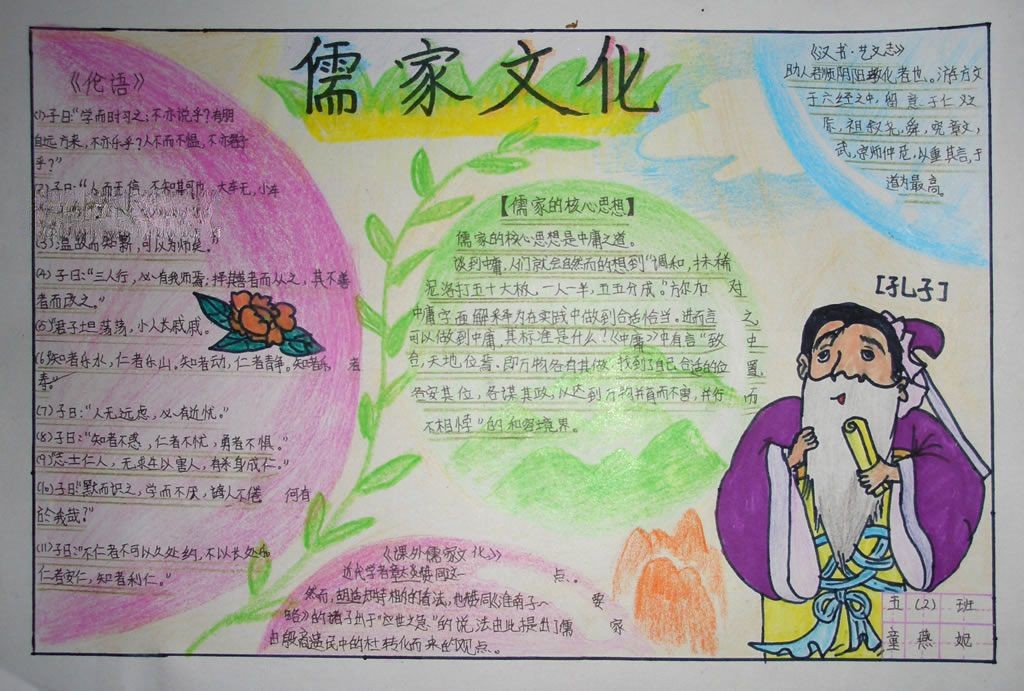 儒家文化
《伦语》
(1)子曰:“学而时习之;不亦说乎?有朋
自远方来,不亦乐乎?人不而不愠,不亦君子
乎?”
(2)子曰:“人而无信,不知其可也,大车无,小车
(3)“温故而知新,可以为师矣。”
(4)子曰:“三人行,必有我师焉;择其善者而从之,其不善
者而改之。”
(5)“君子坦荡荡,小人长戚戚。
(6)知者乐水,仁者乐山。知者动,仁者静。知者乐 者
寿。”
(7)子曰:“人无远虑,必有近忧。”
(8)子曰:“知者不惑,仁者不忧,勇者不惧。”
(9)“志士仁人,无求生以害人,有杀身成仁。”
(10)子曰“默而识之,学而不厌,诲人不倦 何有
於我哉?”
(11)子曰:“不仁者不可以久处约,不以长处乐
仁者安仁,知者利仁。”
【儒家的核心思想】
儒家的核心思想是中庸之道。
谈到中庸,人们就会自然而的想到“调和,抹稀
泥洛打五十大板,一人一半,五五分成。” 对
中庸字面解释为在实践中做到合适恰当。进而言 之
可以做到中庸,其标准是什么!《中庸》中有言“致 中
天地位焉.即万物各有其做.找到了自己合适的位 置,
各安其位,各谋其政,以达到万物并育而不害,并行 而
不相悖”的和容境界。
《汉书·艺文志》
助人君顺阴阳教化者也。游方文
于六经之中,留意于仁义
际,祖叙尧,舜,宪章文,
武,宗师仲尼,以重其言,于
道为最高。
[孔子]
《课外儒家文化》
近代学者章太炎赞同这 点.。
然而,胡适却特相的的看法,也赞同《淮南子~ 要
略》的诸子出于“世之急”的说法由此提出了儒 家
由殷商遗民中的杜转化而来的观点。
五(2)班
童燕妮